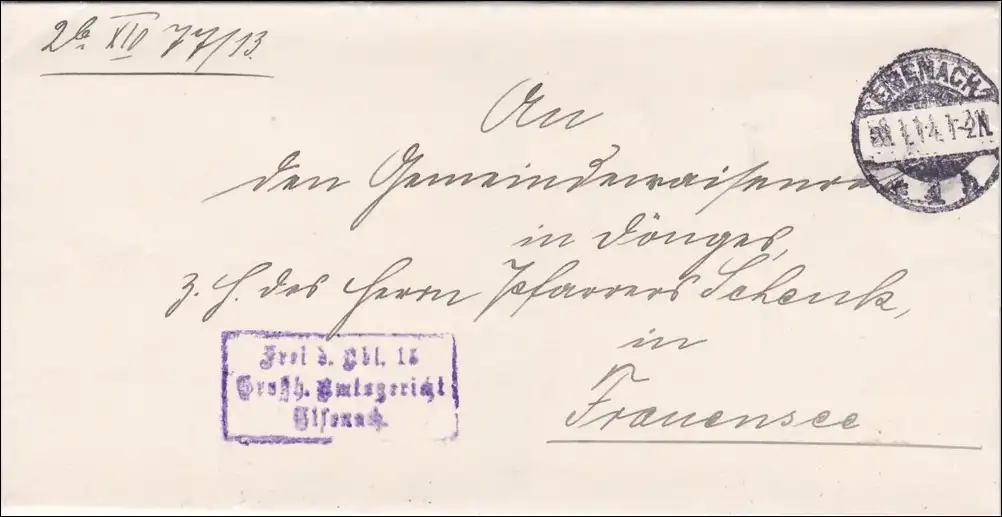 2b XIV 77/13.
EISENACH
1-2N.
An
den Gemeindewaisenrat
in Dönges,
z. H. des Herrn Pfarrers Schenk,
in
Frauensee
Frei d. Abl. 16
Großh. Amtsgericht
Eisenach.